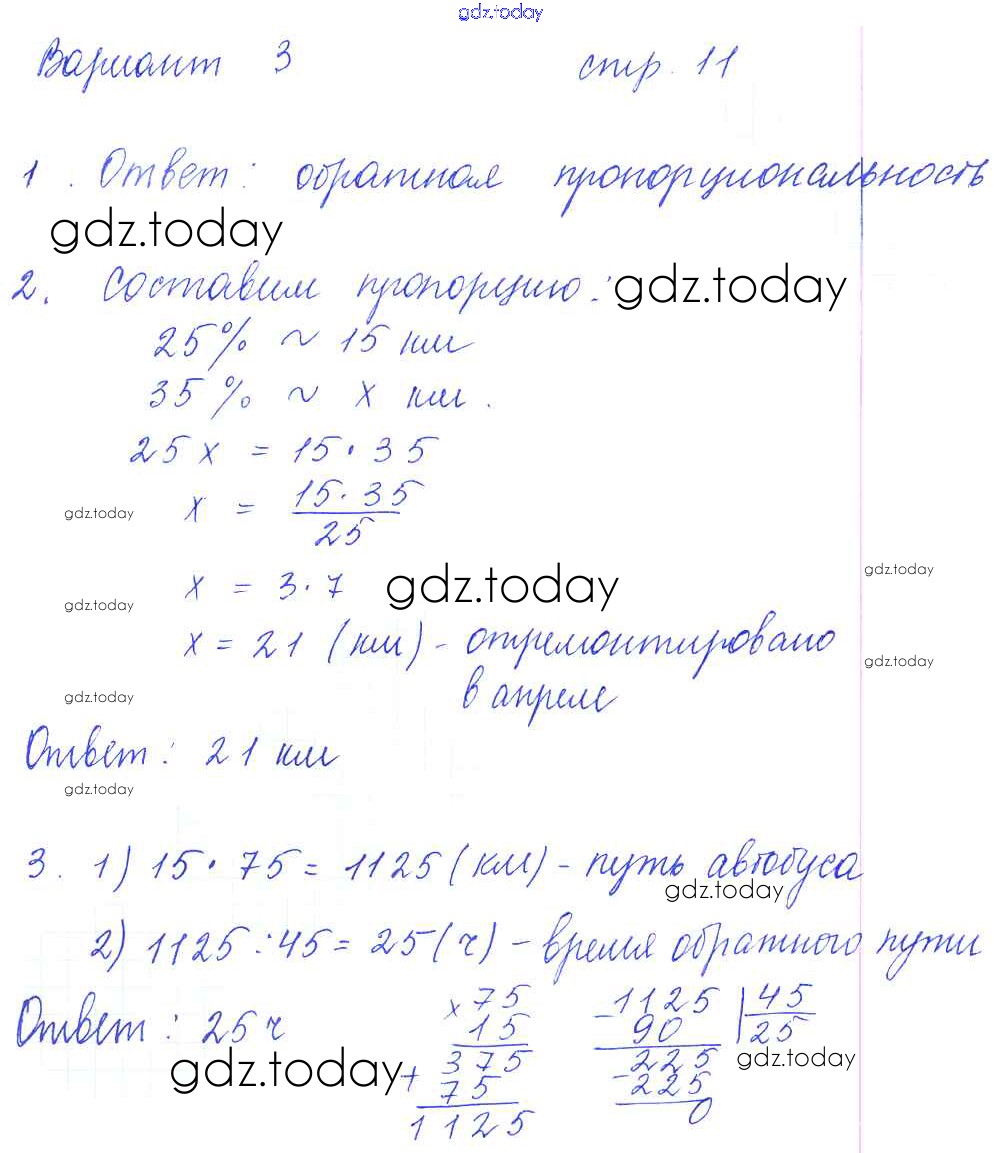 gdz.today
Вариант 3 стр. 11
1. Ответ: обратная пропорциональность
gdz.today
2. Составим пропорцию: gdz.today
25% ~ 15 км
35% ~ x км.
25x = 15·35
gdz.today x = 15·35/25
x = 3·7 gdz.today gdz.today
gdz.today
x = 21 (км) - отремонтировано gdz.today
gdz.today в апреле
Ответ: 21 км
gdz.today
3. 1) 15·75 = 1125 (км) - путь автобуса
gdz.today
2) 1125:45 = 25 (ч) - время обратного пути
Ответ: 25 ч
gdz.today
×75
15
375
+75
1125
-1125 | 45
90 25
225 gdz.today
-225
0